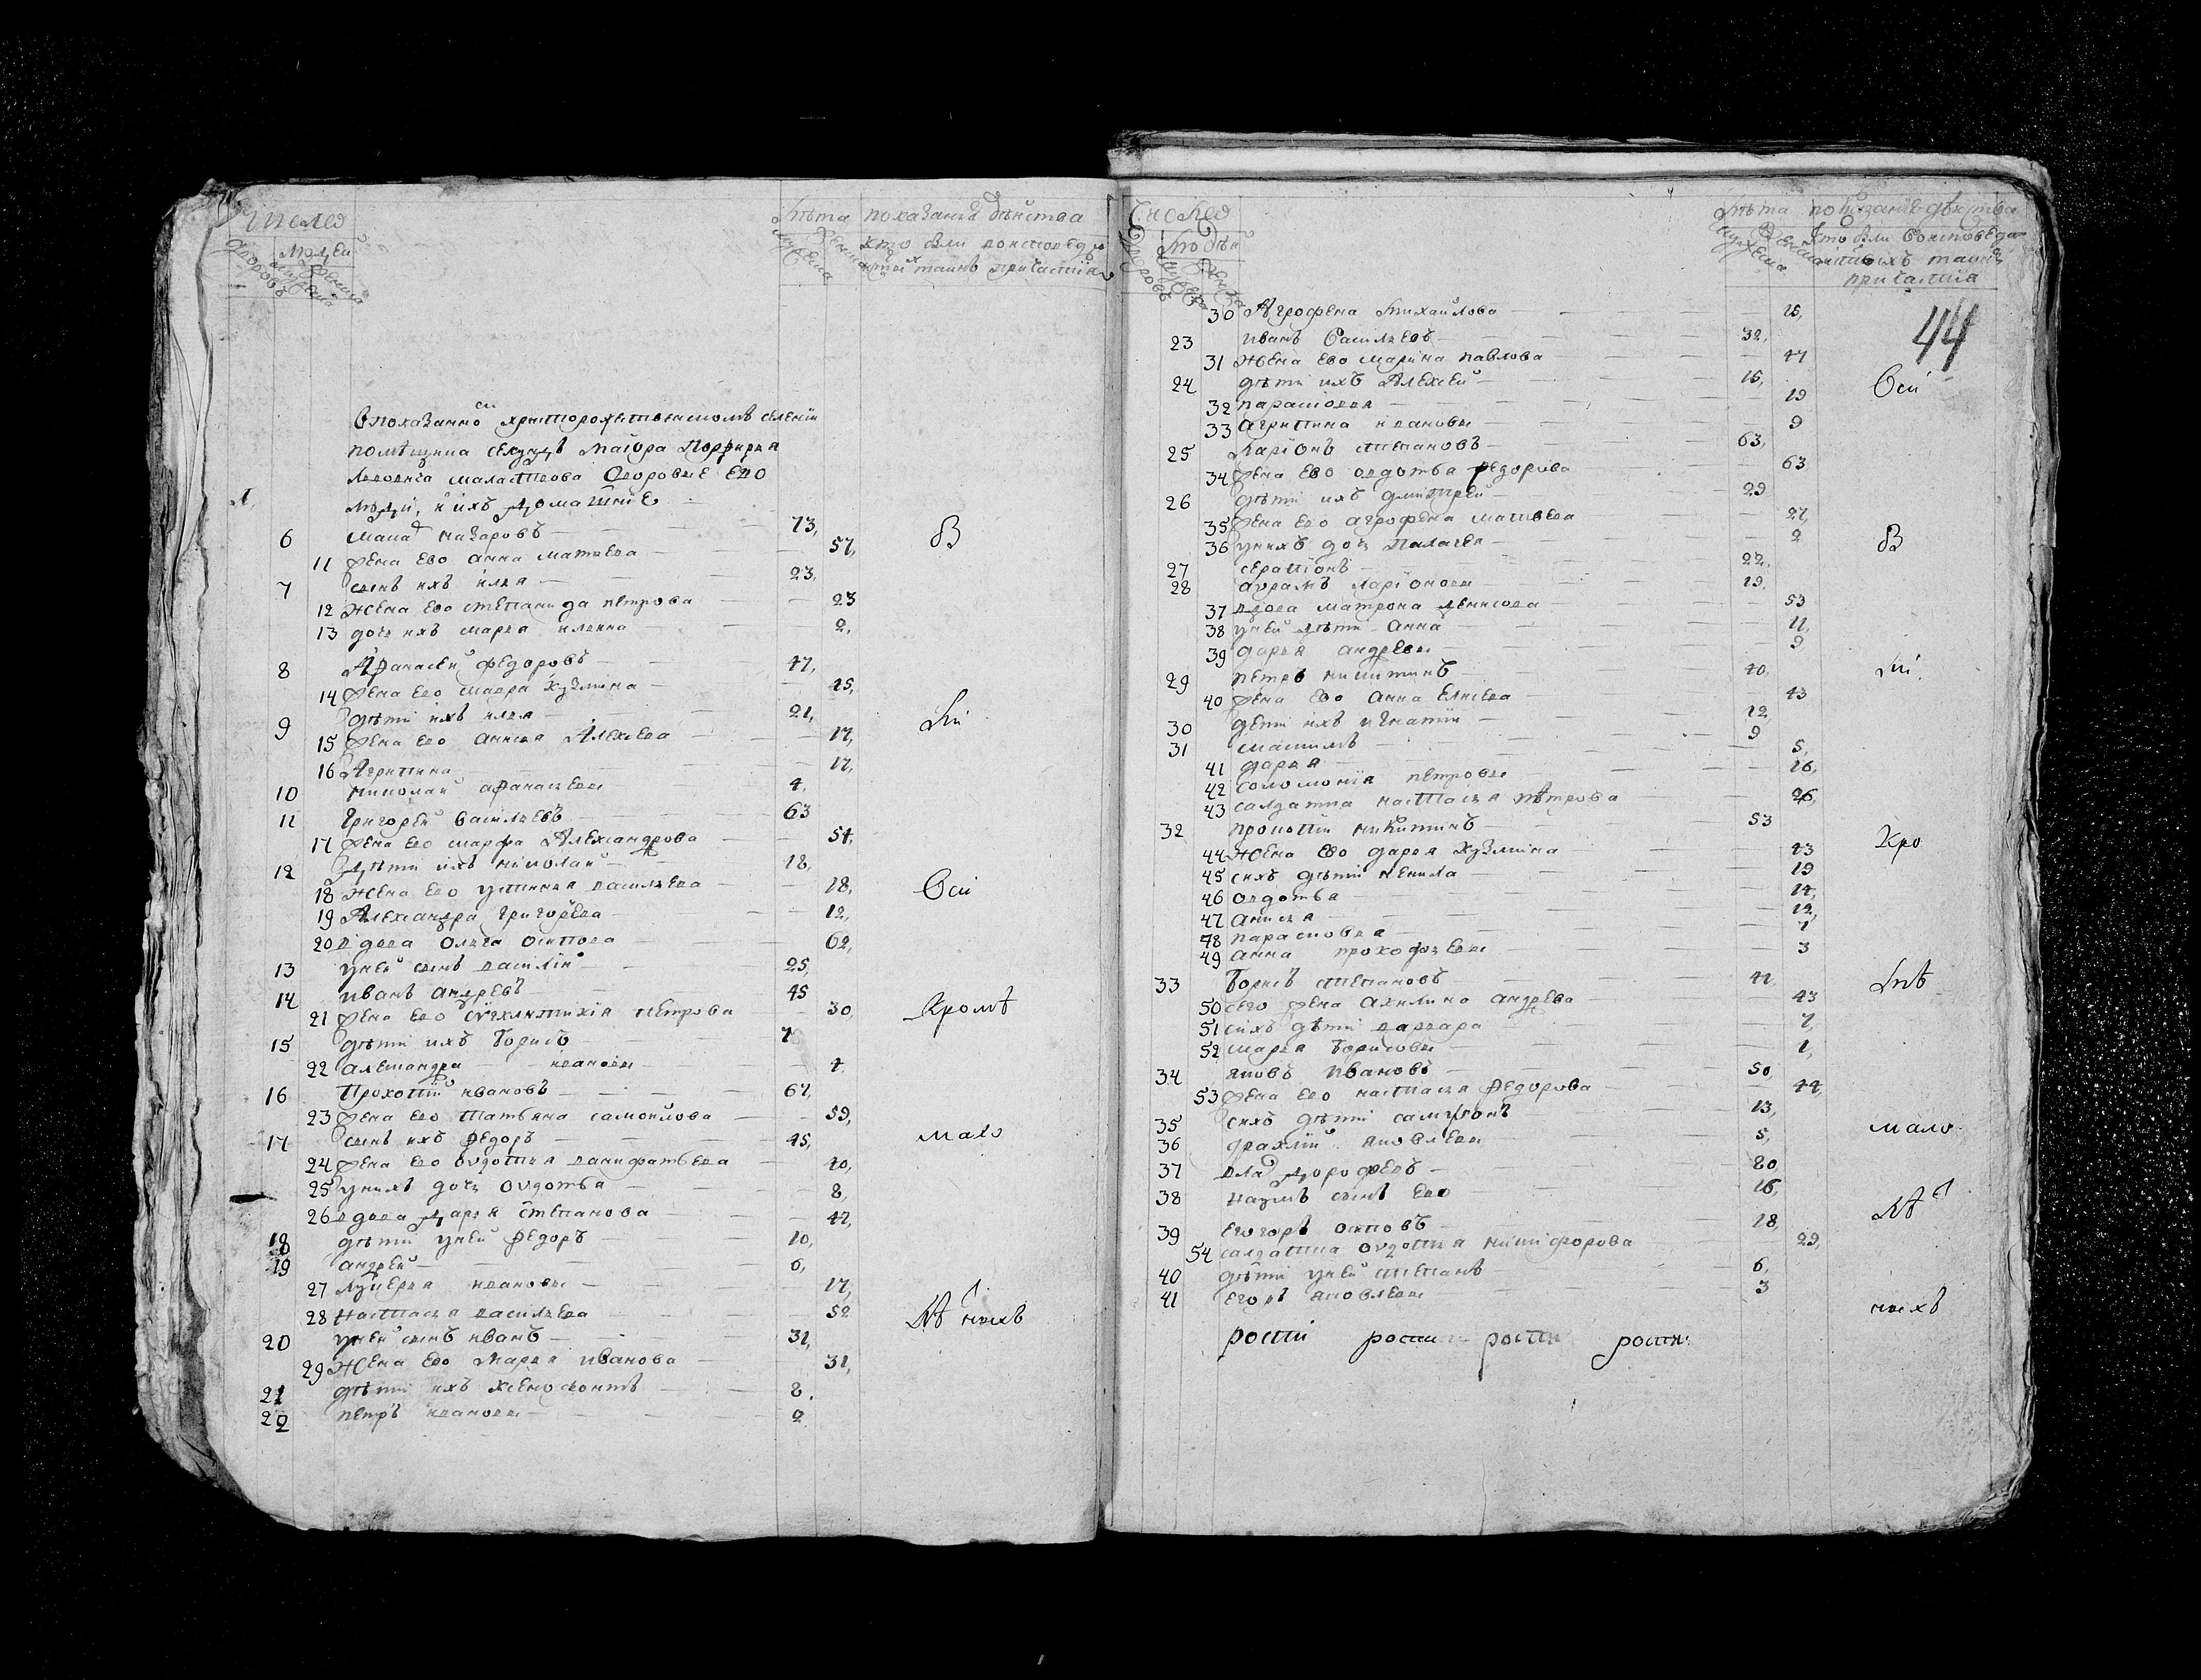 Число
людей
дворовъ
мужеска
женска
лѣта показание дѣйства
мужеска женска кто были воисповеди
и стыхъ таинъ причастия
Впоказанномъ христорождественскомъ селении
помѣщика секундъ маиора Порфирья
маластвова дворовые ево
люди, и ихъ домашние
6 назаровъ 73,
11 жена ево анна матвева 57,
7 сынъ ихъ илья 23,
12 жена ево степанида петрова 23
13 дочь ихъ марья илина 2,
8 Афанасей федоровъ 47,
14 жена ево мавра кузмина 45,
9 дѣти ихъ илья 21,
15 жена ево анисья Алексева 17,
16 Агрипина 17,
10 николай афанасьевы 4,
11 Григорей васильевъ 63
17 жена ево марфа Александрова 54,
12 дѣти ихъ николай 18,
18 жена ево устинья васильева 18,
19 Александра григорьева 12,
20 вдова ольга осипова 62,
13 унеи сынъ василий 25,
14 иванъ андревъ 45
21 жена ево петрова 30,
15 дѣти ихъ борисъ 7
22 александра ивановы 4
16 Прокопий ивановъ 67,
23 жена ево татьяна самойлова 59,
17 сынъ ихъ федоръ 45,
24 жена ево евдотья ванифатьева 40,
25 унихъ дочь овдотья 8,
26 вдова дарья степанова 47,
18 дѣти унеи федоръ 10,
19 андрей 6,
27 лукерья ивановы 17,
28 настасья васильева 52
20 унеи сынъ иванъ 31,
29 жена ево марья иванова 31,
21 дѣти ихъ ксенофонтъ 8,
22 петръ ивановы 2
В
Си
Кромѣ
мало
нихъ
Число
людей
дворовъ
лѣта показание дѣйства
мужеска женска кто были воисповеди
и стыхъ таинъ
причастия
44
30 Агрофена михайлова 15,
23 иванъ васильевъ 32,
31 жена ево марина павлова 47
24 дѣти ихъ Алексей 15,
32 парасковья 19
33 агрипина ивановы 9
25 Ларионъ степановъ 63,
34 жена ево авдотья федорова 63
26 дѣти ихъ дмитрей 29
35 жена ево агрофена матвева 27,
36 унихъ дочь пелагея 2
27 серапионъ 22,
28 аврамъ ларионовы 19,
37 вдова матрона денисова 53
38 унеи дѣти анна 11,
39 дарья андревы 9
29 петръ никитинъ 40,
40 жена ево анна елисева 43
30 дети ихъ игнатий 12
31 максимъ 9
41 дарья 5,
42 соломония петровы 16,
43 салдатка настасья петрова 26,
32 прокопий никитинъ 53
44 жена ево дарья кузмина 43
45 ихъ дѣти ненила 19
46 авдотья 14,
47 анисья 12,
48 парасковья 7
49 анна прокофьевы 3
33 Борисъ степановъ 42,
50 ево жена акилина андрева 43
51 ихъ дѣти варвара 7,
52 марья борисовы 1,
34 яковъ ивановъ 50,
53 жена ево настасья федорова 44,
35 ихъ дѣти самсонъ 13,
36 яковлевы 5,
37 дорофеевъ 80,
38 наумъ сынъ ево 16,
39 егоръ осиповъ 18,
54 салдатка овдотья никифорова 29,
40 дѣти унеи степанъ 6,
41 егоръ яковлевы 3
В
Кро
мало
нихъ